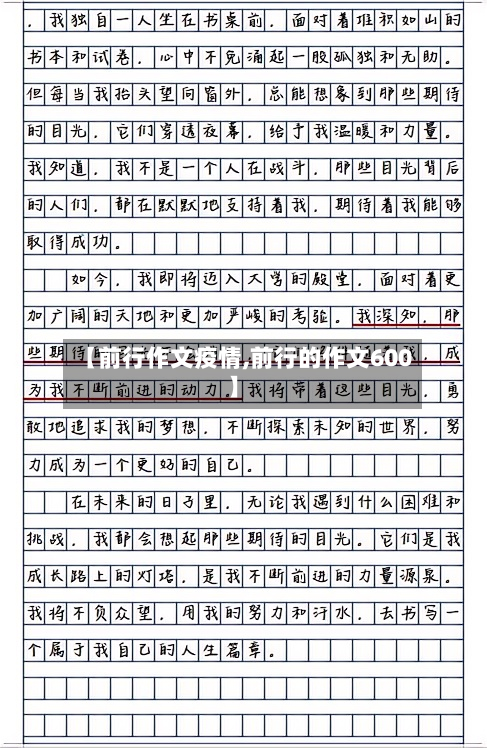 ，我独自一人坐在书桌前，面对着堆积如山的
书本和试卷，心中不免涌起一股孤独和无助。
但每当我抬头望向窗外，总能想象到那些期待
的目光，它们穿透夜幕，给予我温暖和力量。
我知道，我不是一个人在战斗，那些目光背后
的人们，都在默默地支持着我，期待着我能够
取得成功。
如今，我即将迈入大学的殿堂，面对着更
加广阔的天地和更加严峻的考验。我深知，那
些期待的
着我，成
【前行作文疫情,前行的作文600
】
为我不断前进的动力。我将带着这些目光，勇
敢地追求我的梦想，不断探索未知的世界，努
力成为一个更好的自己。
在未来的日子里，无论我遇到什么困难和
挑战，我都会想起那些期待的目光。它们是我
成长路上的灯塔，是我不断前进的力量源泉。
我将不负众望，用我的努力和汗水，去书写一
个属于我自己的人生篇章。